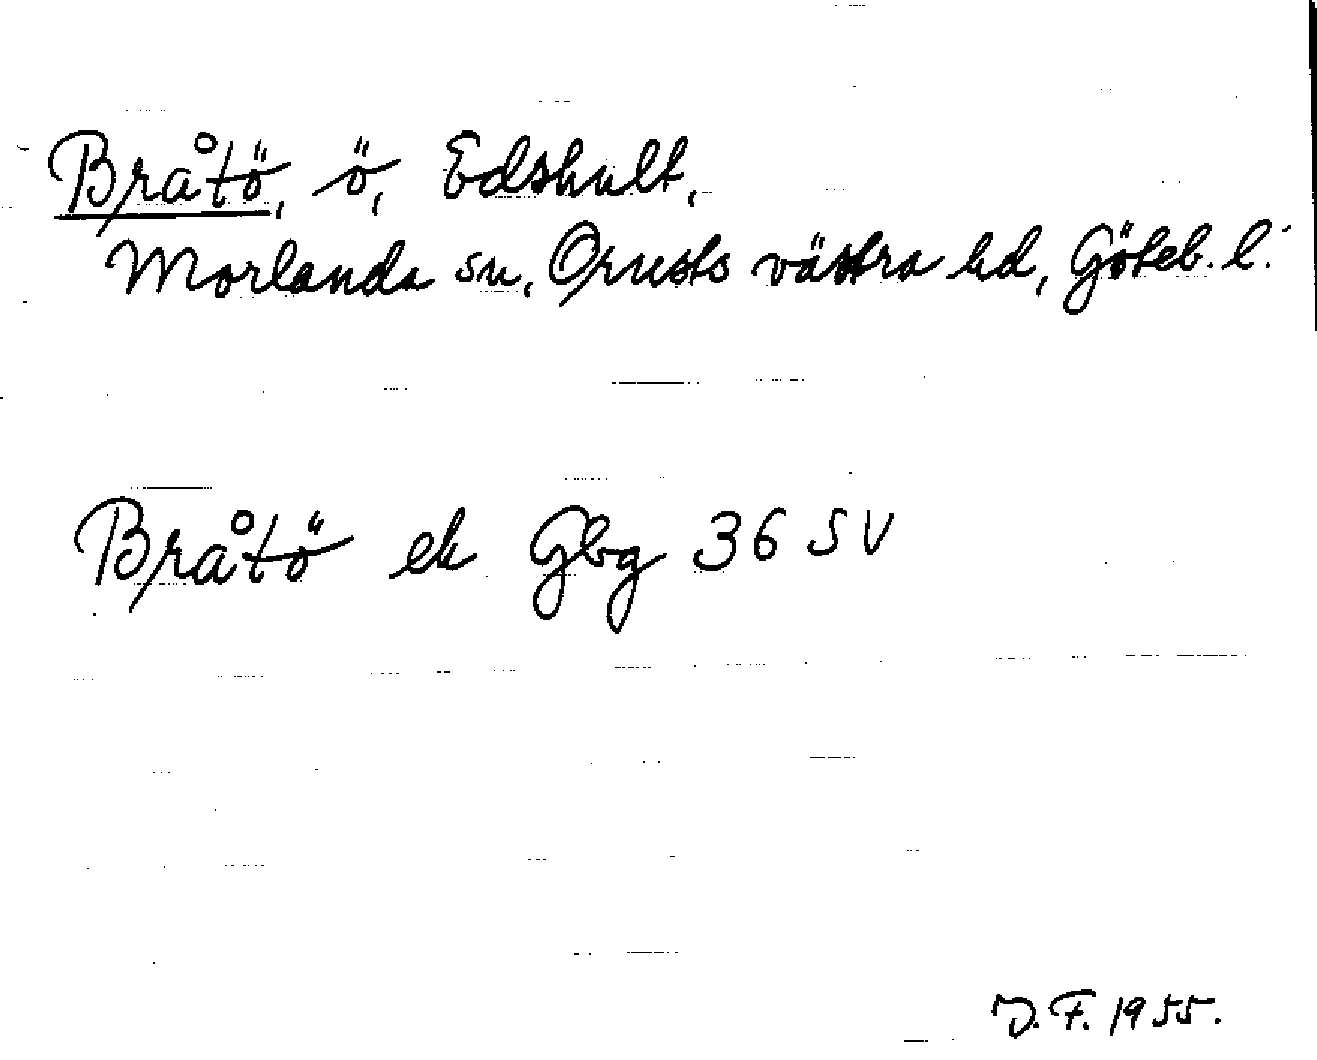 Bråtö, ö, Edshult,
Morlanda sn, Orusts västra hd, Göteb. l.
Bråtö ek Gbg 36 SV
D.F. 1955.